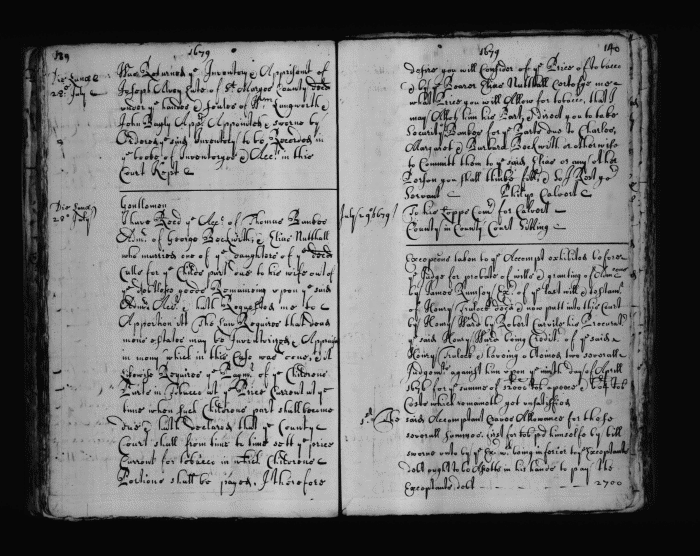 139
1679
Die Sune
28º July
Was Returned ye Inventory & Apprisemt of
Joseph Avery late of St Maryes County decd
under ye hands & seales of Wm Langworth &
John Bayly Apprs Appointed & sworne by
Orderd ye said Inventory to be Recorded in
ye booke of Inventoryes & Acc. in this
Court Kept
28º July
Gentlemen
I have Recd ye Acc. of Thomas Banks
Admr of George Beckwith & Elias Nutthall
who marryed one of ye daughters of ye decd
Calls for ye Childs part due to his wife out of
goods Remaining upon ye said
Admrs Acct & hath Requested me to
Apportion it The Law Requires that dead
mens estates may be Inventoryed & Appraised
in mony which in this Case was done, & it
likewise Requires ye Paymt of ye Childrens
Parts in Tobacco at ye Price Currant at ye
time when such Childrens part shall become
due & hath declared that ye County
Court shall from time to time sett ye price
Currant for tobacco in which Childrens
Portions shall be payed, I therefore
1679
140
desire you will Consider of ye Price of tobacco
& by ye Bearer Elias Nutthall Certefye me
what Price you will Allow for tobacco, that I
may Allott him his Part, & direct you to take
Security Bonds for ye Parts due to Charles,
Margaret & Barbara Beckwith or otherwise
to Committ them to ye said Elias or any other
Person you shall thinke fitt, & so I Rest yor
Servant Philip Calvert
July 29º 1679
To his Lopps Comrs for Calvert
County in County Court Sitting
Exceptions taken to ye Accompt exhibited before
ye Judge for probate of wills & granting of Admcons
by James Rumsey Exr of ye last will & testamt
of Henry Trulock decd & now putt into this Court
by Henry Ward by Robert Carvile his Procuratr
ye said Henry Ward being Creditr of ye said
Henry Trulock & having obteined two severall
Judgmts against him upon ye ninth day of Aprill
1678 for ye summe of 12000 tob apeece & tob
Costs which remaineth yet unsatisfied
1st The said Accomptant Craves Allowance for these
severall summes. first for tob pd himselfe by bill
sworne unto by ye Exr wch being inferior to ye Exceptants
debt ought to be Assetts in his hands to pay the
Exceptants debt 2700